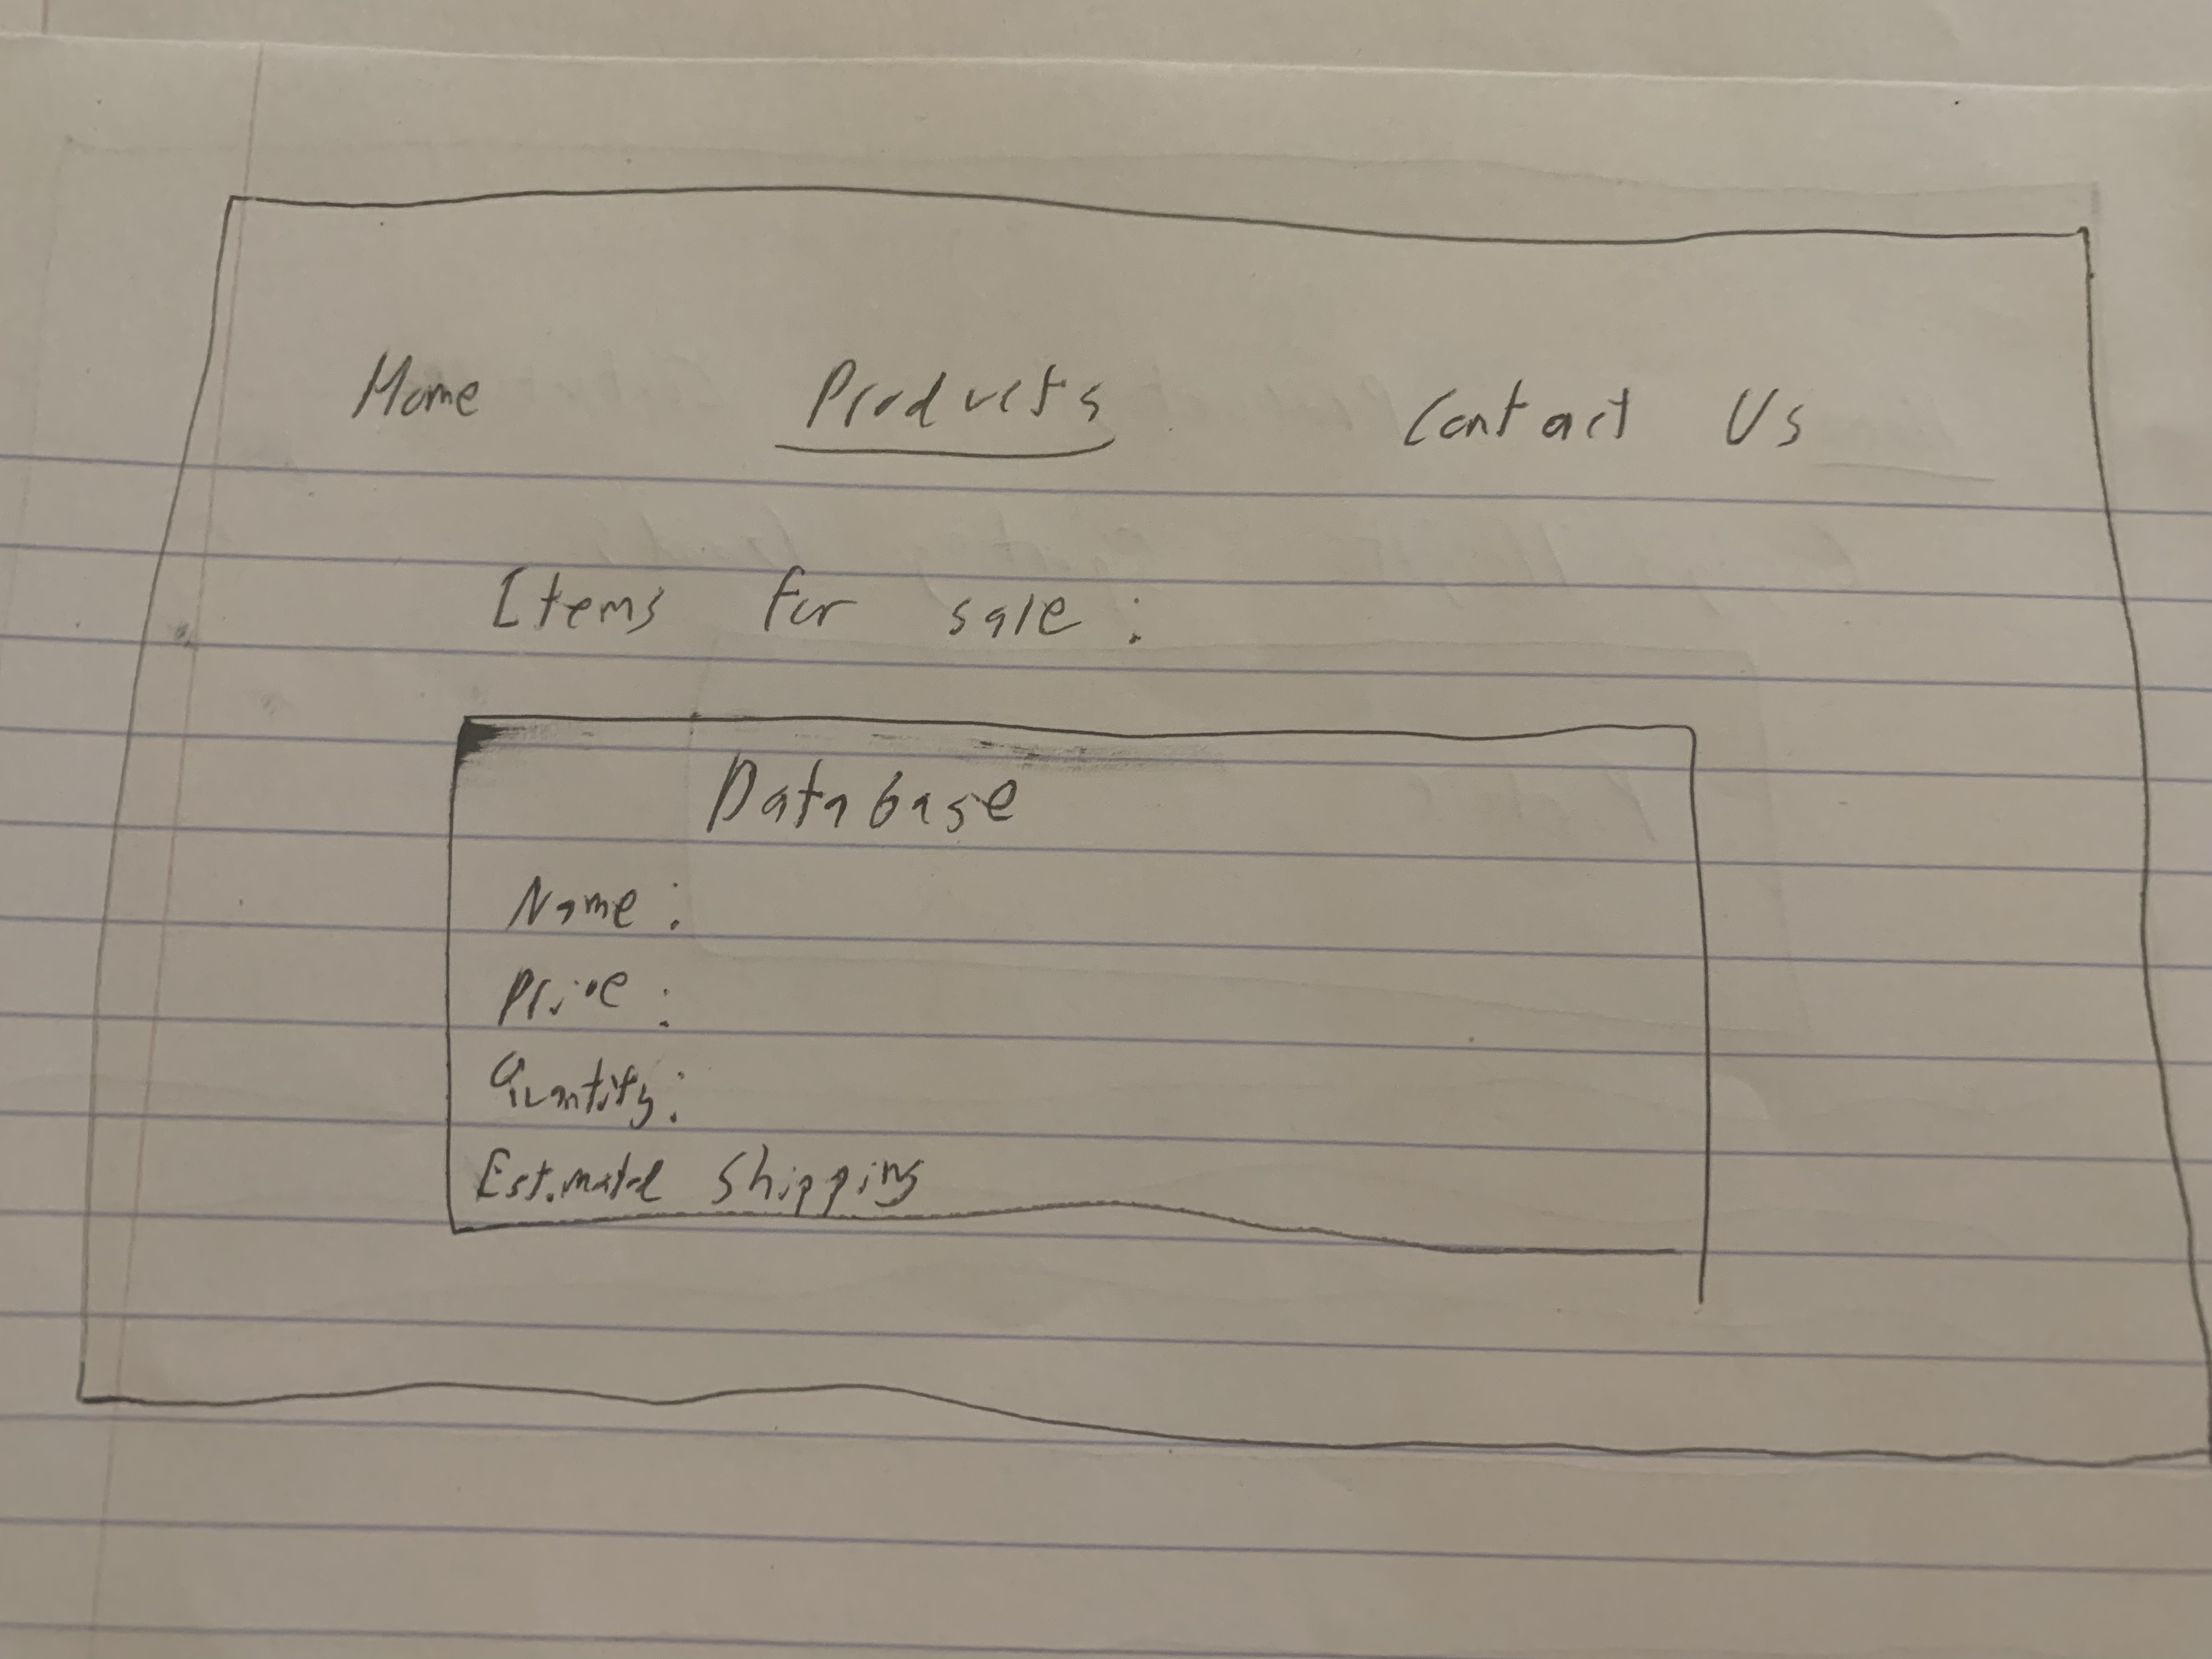 Home Products Contact Us
Items for sale:
Database
Name:
Price:
Quantity:
Estimated Shipping